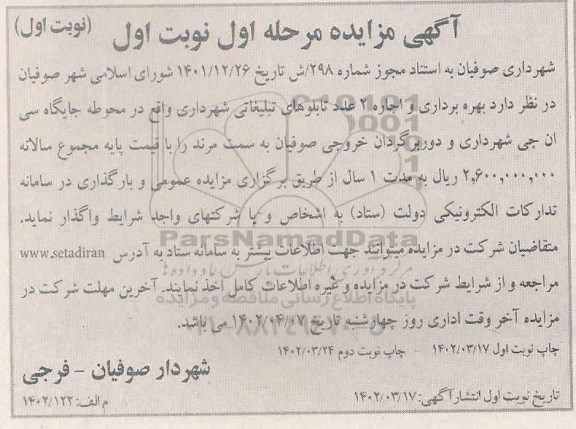 آگهی مزایده مرحله اول نوبت اول (نوبت اول)
شهرداری صوفیان به استناد مجوز شماره ۲۹۸/ش تاریخ ۱۴۰۱/۱۲/۲۶ شورای اسلامی شهر صوفیان
در نظر دارد بهره برداری و اجاره ۲ عدد تابلوهای تبلیغاتی شهرداری واقع در محوطه جایگاه سی
ان جی شهرداری و دوربرگردان خروجی صوفیان به سمت مرند را با قیمت پایه مجموع سالانه
۲,۶۰۰,۰۰۰,۰۰۰ ریال به مدت ۱ سال از طریق برگزاری مزایده عمومی و بارگذاری در سامانه
تدارکات الکترونیکی دولت (ستاد) به اشخاص و یا شرکتهای واجد شرایط واگذار نماید.
متقاضیان شرکت در مزایده میتوانند جهت اطلاعات بیشتر به سامانه ستاد به آدرس www.setadiran
مراجعه و از شرایط شرکت در مزایده و غیره اطلاعات کامل اخذ نمایند. آخرین مهلت شرکت در
مزایده آخر وقت اداری روز چهارشنبه تاریخ ۱۴۰۲/۰۴/۰۷ می باشد.
چاپ نوبت اول ۱۴۰۲/۰۳/۱۷ - چاپ نوبت دوم ۱۴۰۲/۰۳/۲۴
شهردار صوفیان - فرجی
تاریخ نوبت اول انتشار آگهی: ۱۴۰۲/۰۳/۱۷ م الف: ۱۴۰۲/۱۲۲
ParsNamadData
پایگاه اطلاع رسانی مناقصه و مزایده